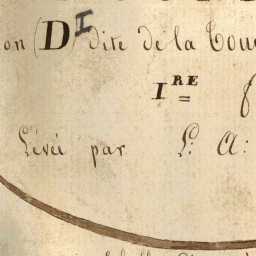 on (D I dite de la
I RE
Levée par L: A: